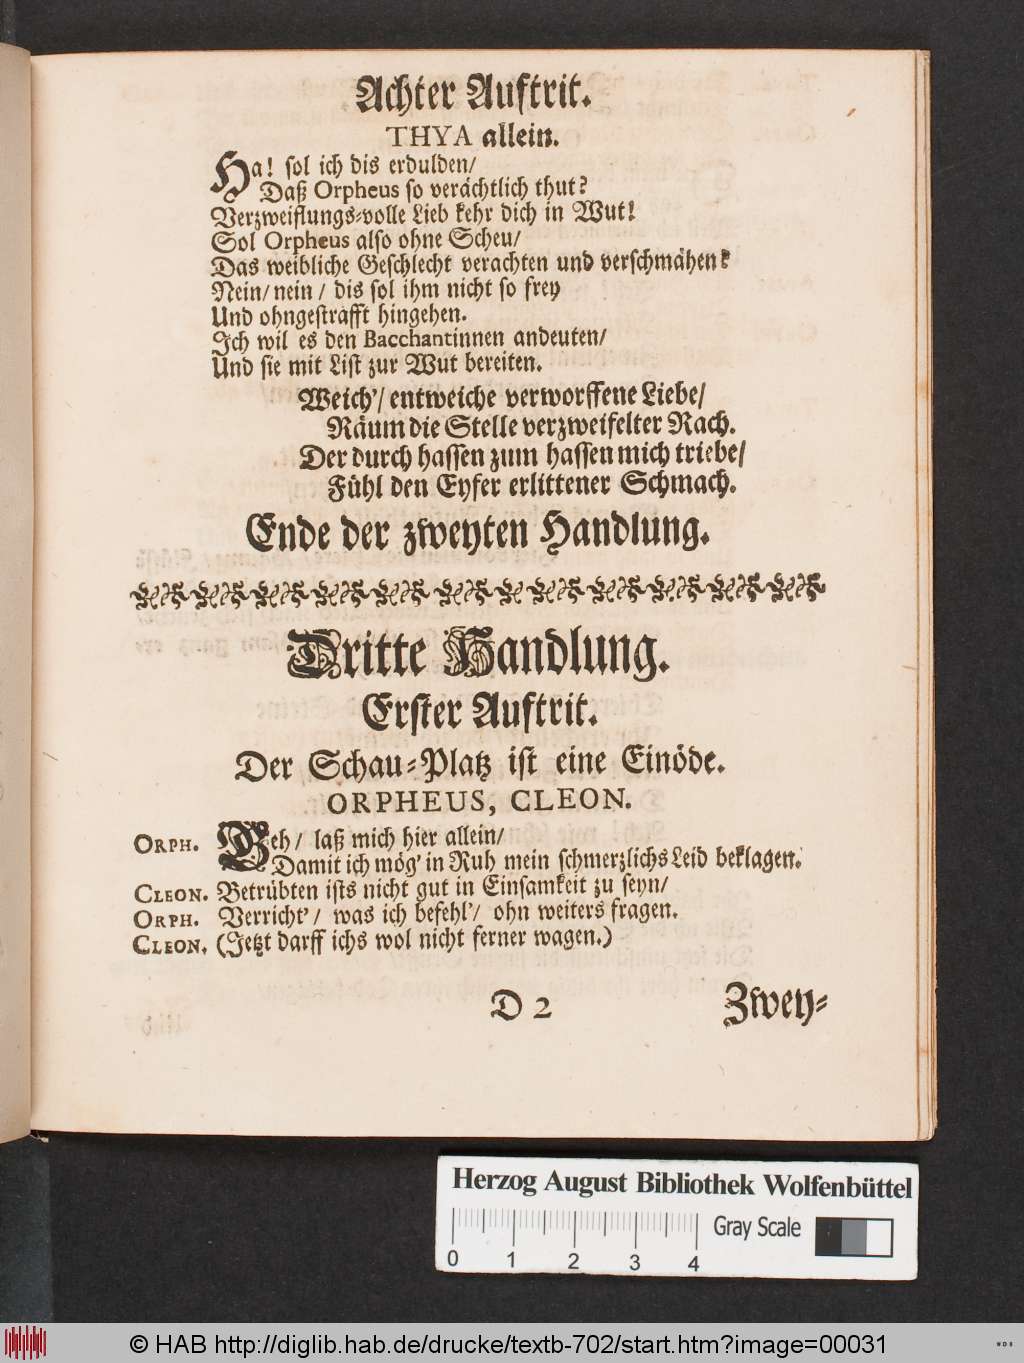 Achter Auftrit.
THYA allein.
Ha! sol ich dis erdulden/
Daß Orpheus so verächtlich thut?
Verzweiflungs-volle Lieb kehr dich in Wut!
Sol Orpheus also ohne Scheu/
Das weibliche Geschlecht verachten und verschmähen?
Nein/ nein/ dis sol ihm nicht so frey
Und ohngesträfft hingehen.
Ich wil es den Bacchantinnen andeuten/
Und sie mit List zur Wut bereiten.
Weich'/ entweiche verworffene Liebe/
Räum die Stelle verzweifelter Rach.
Der durch hassen zum hassen mich triebe/
Fühl den Eyfer erlittener Schmach.
Ende der zweyten Handlung.
Dritte Handlung.
Erster Auftrit.
Der Schau-Platz ist eine Einöde.
ORPHEUS, CLEON.
ORPH. Geh/ laß mich hier allein/
Damit ich mög' in Ruh mein schmerzlichs Leid beklagen.
CLEON. Betrübten ists nicht gut in Einsamkeit zu seyn/
ORPH. Verricht'/ was ich befehl'/ ohn weiters fragen.
CLEON. (Jetzt darff ichs wol nicht ferner wagen.)
D 2 Zwey-
Herzog August Bibliothek Wolfenbüttel
Gray Scale
0 1 2 3 4
© HAB http://diglib.hab.de/drucke/textb-702/start.htm?image=00031